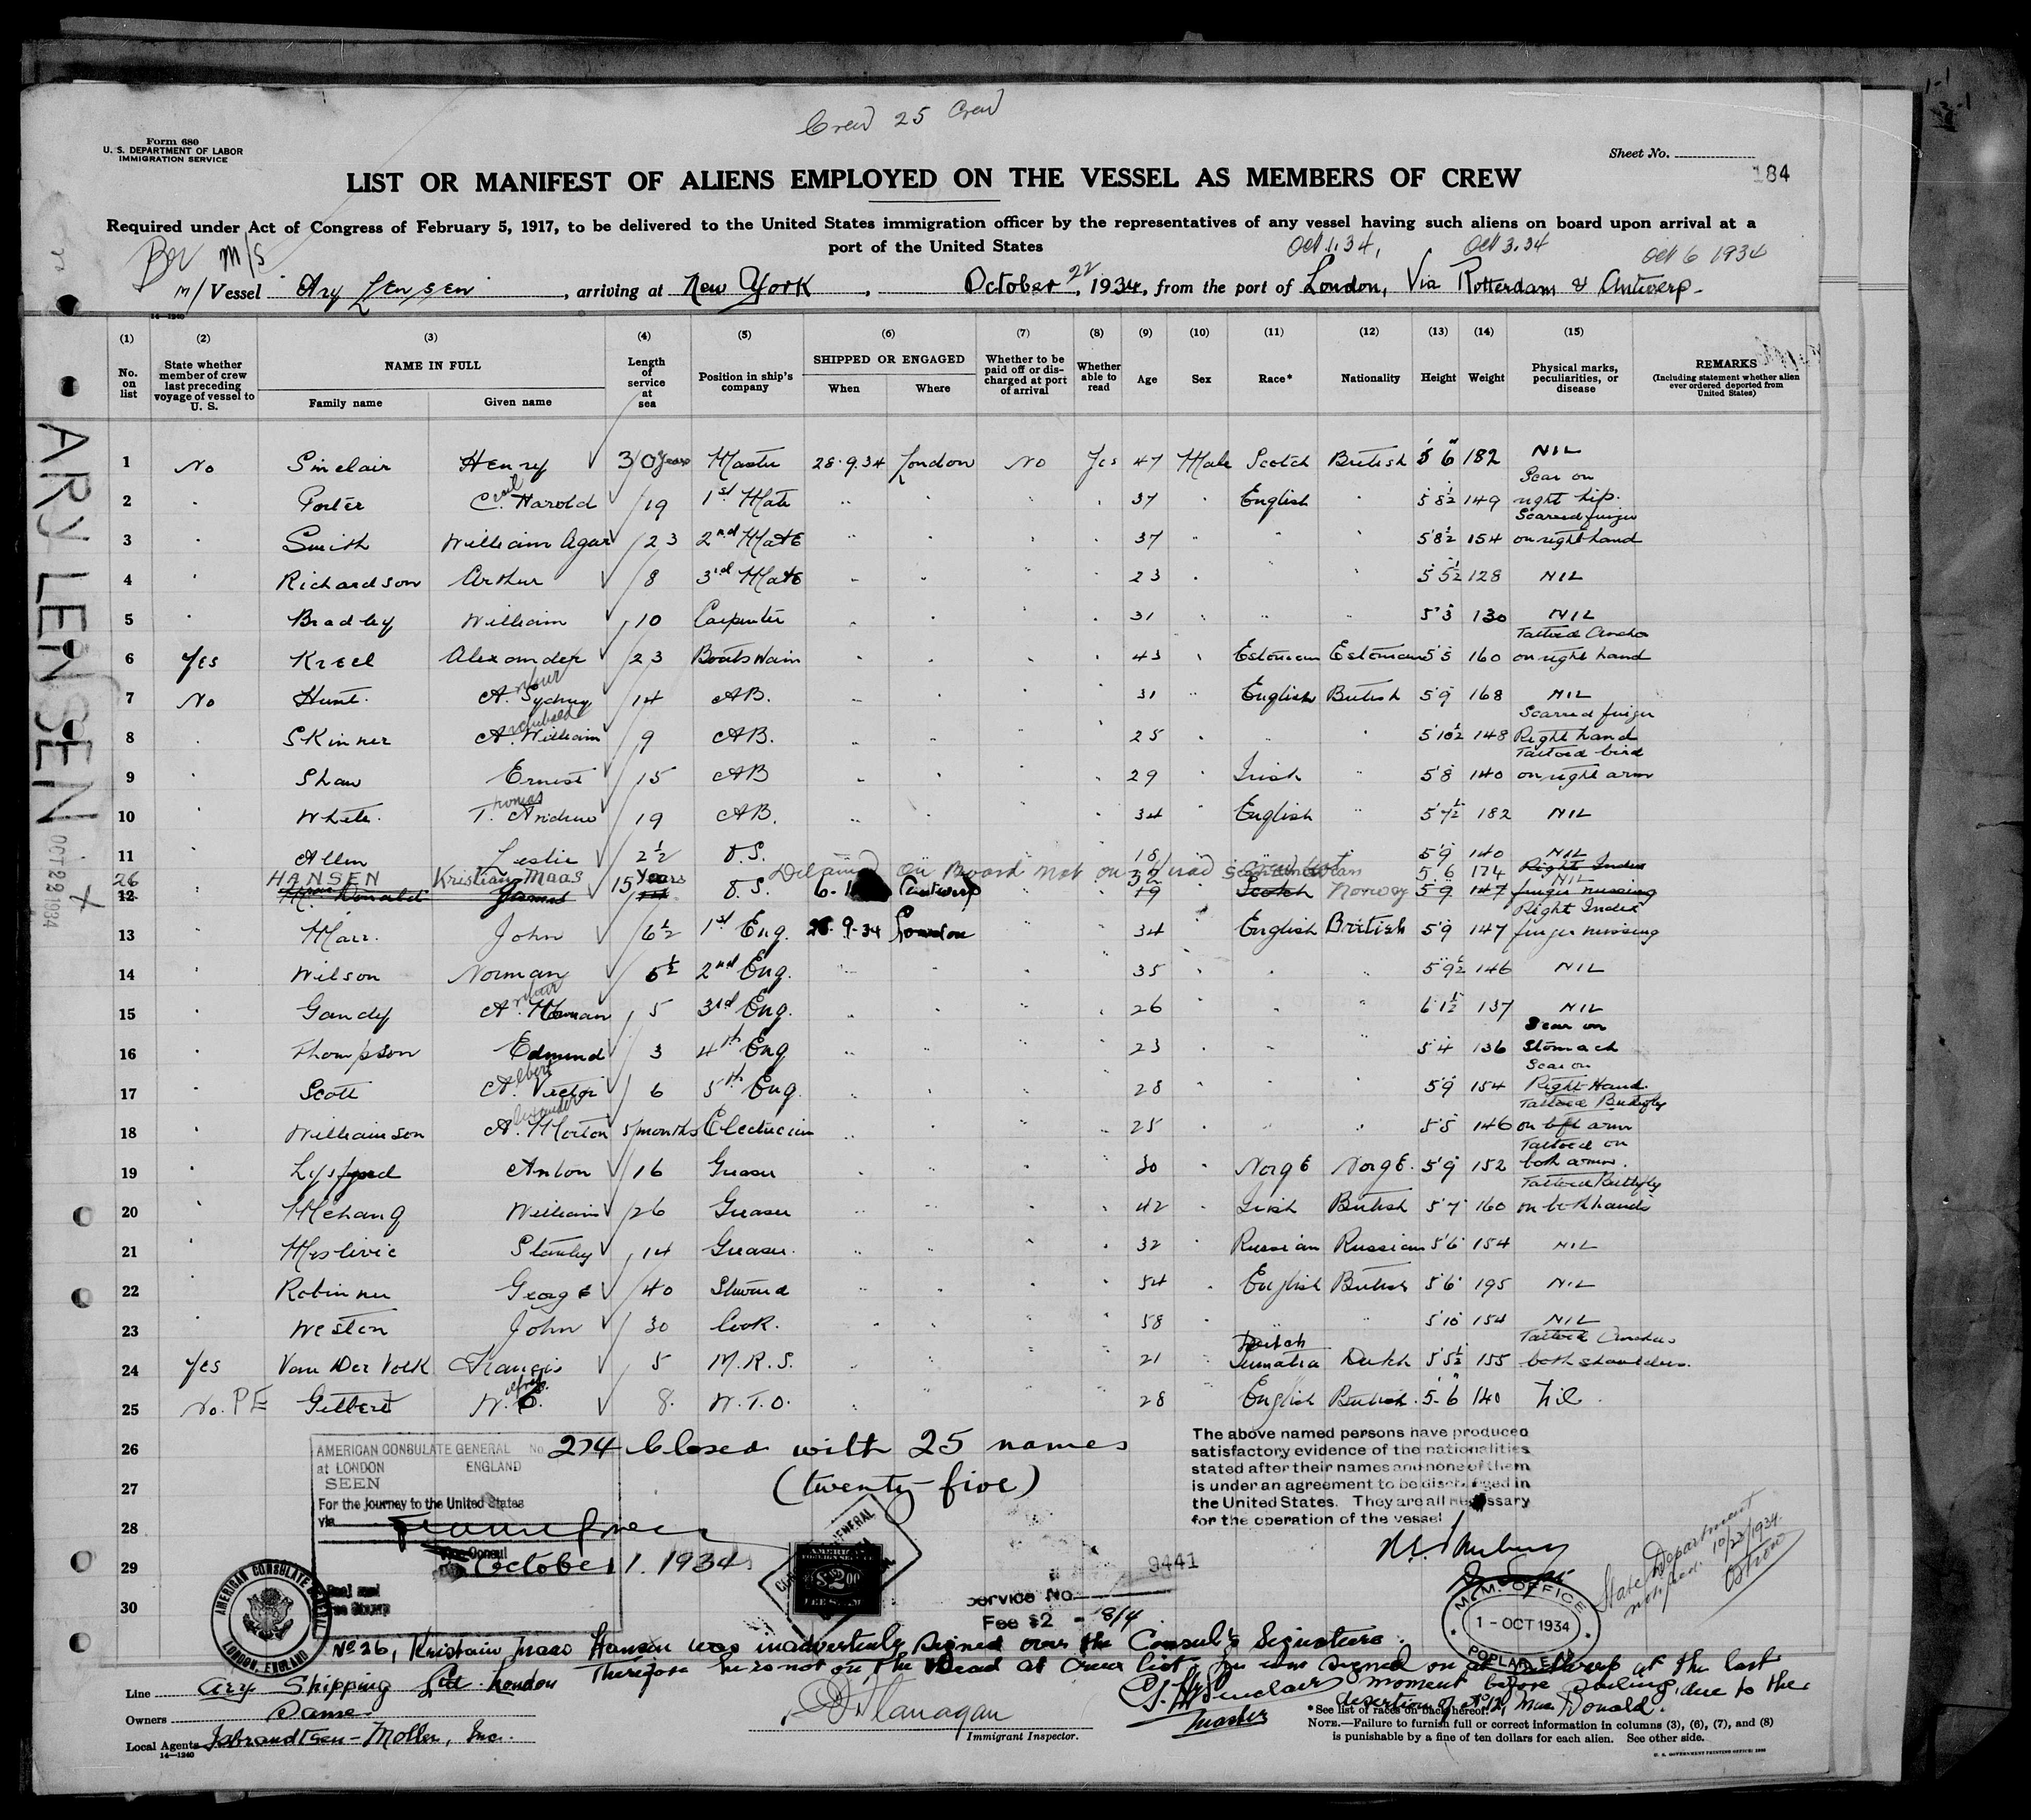 Crew 25 Crew
Form 680
U. S. DEPARTMENT OF LABOR
IMMIGRATION SERVICE
Sheet No.
184
LIST OR MANIFEST OF ALIENS EMPLOYED ON THE VESSEL AS MEMBERS OF CREW
Required under Act of Congress of February 5, 1917, to be delivered to the United States immigration officer by the representatives of any vessel having such aliens on board upon arrival at a
port of the United States
Oct 1.34, Oct 3.34 Oct 6 1934
Ber M/S
m/ Vessel Ary Lensen, arriving at New York, October 22, 1934, from the port of London, Via Rotterdam & Antwerp.
14—1240
(1) (2) (3) (4) (5) (6) (7) (8) (9) (10) (11) (12) (13) (14) (15)
No. on list
State whether member of crew last preceding voyage of vessel to U. S.
NAME IN FULL
Family name Given name
Length of service at sea
Position in ship's company
SHIPPED OR ENGAGED
When Where
Whether to be paid off or discharged at port of arrival
Whether able to read
Age Sex Race* Nationality Height Weight
Physical marks, peculiarities, or disease
REMARKS
(Including statement whether alien ever ordered deported from United States)
1 No Sinclair Henry 30 years Master 28.9.34 London No Yes 47 Male Scotch British 5'6" 182 NIL
2 Porter C. Harold 19 1st Mate 37 English 5 8½ 149 Scar on right hip.
3 Smith William Agar 23 2nd Mate 37 5'8½ 154 Scarred finger on right hand
4 Richardson Arthur 8 3rd Mate 23 5 5½ 128 NIL
5 Bradley William 10 Carpenter 31 5'3 130 NIL
6 Yes Kreel Alexander 23 Boatswain 43 Estonian Estonian 5'5 160 Tattoed Anchor on right hand
7 No Hunt. Arthur Sydney 14 AB. 31 English British 5'9 168 NIL
8 Skinner Archibald William 9 AB. 25 5'10½ 148 Scarred finger Right hand
9 Shaw Ernest 15 AB 29 Irish 5'8 140 Tattoed bird on right arm
10 White. Thomas Andrew 19 AB. 34 English 5'7½ 182 NIL
11 Allen Leslie 2½ O.S. 18 5'9 140 NIL
Detained on Board not on visad crew list
26 HANSEN Kristian Maas 15 Years O.S. Antwerp 32 Scandinavian Norway 5 6 174 NIL
12 Mac Donald James 14 19 Scotch 5 9 147 Right Index finger missing
13 Marr. John 6½ 1st Eng. 28.9.34 London 34 English British 5'9 147 Right Index finger missing
14 Wilson Norman 5½ 2nd Eng. 35 5'9½ 146 NIL
15 Gandy Arthur 5 3rd Eng. 26 6 1½ 137 NIL
16 Thompson Edmund 3 4th Eng 23 5'4 136 Scar on Stomach
17 Scott Albert Victor 6 5th Eng. 28 5'9 154 Scar on Right Hand.
18 Williamson Alexander Morton 5/months Electrician 25 5'5 146 Tattoed Butterfly on left arm
19 Anton 16 Greaser 30 Norge Norge. 5'9 152 Tattoed on both arms.
20 William 26 Greaser 42 Irish British 5'7 160 Tattoed Butterfly on both hands
21 Stanley 14 Greaser. 32 Russian Russian 5'6 154 NIL
22 George 40 Steward 54 English British 5'6 195 NIL
23 Weston John 30 Cook. 58 5'10 154 NIL
24 Yes Van Der Volk Francis 5 M.R.S. 21 Dutch Sumatra Dutch 5'5½ 155 Tattoed Anchors both shoulders.
25 No. PE Gilbert W. 8. W.T.O. 28 English British. 5.6 140 Nil.
26
27
28
29
30
ARY LENSEN
OCT 22 1934
AMERICAN CONSULATE GENERAL No. 274 Closed with 25 names
at LONDON ENGLAND
(twenty-five)
SEEN
For the journey to the United States
via
Vice Consul
October 1. 1934
Seal and
Fee Stamp
AMERICAN CONSULATE GENERAL
LONDON, ENGLAND
AMERICAN
FOREIGN SERVICE
$2.00
FEE STAMP
The above named persons have produced
satisfactory evidence of the nationalities
stated after their names and none of them
is under an agreement to be discharged in
the United States. They are all necessary
for the operation of the vessel
9441
Service No.
Fee $2 = 8/4
M.M. OFFICE
1 - OCT 1934
POPLAR, E.14
State Department
notified. 10/22/1934.
No 26, Kristain Maas Hansen was inadvertently signed over the Consul's Signature.
Therefore he is not on the Visad at Crew list. He was signed on at Antwerp at the last
moment before sailing, due to the
desertion of No 12, Mac Donald.
Line Ary Shipping Ltd London
Owners Same
Local Agents Isbrandtsen-Moller, Inc.
14—1240
Flanagan
Immigrant Inspector.
Sinclair
Master
*See list of races on back hereof.
NOTE.—Failure to furnish full or correct information in columns (3), (6), (7), and (8)
is punishable by a fine of ten dollars for each alien. See other side.